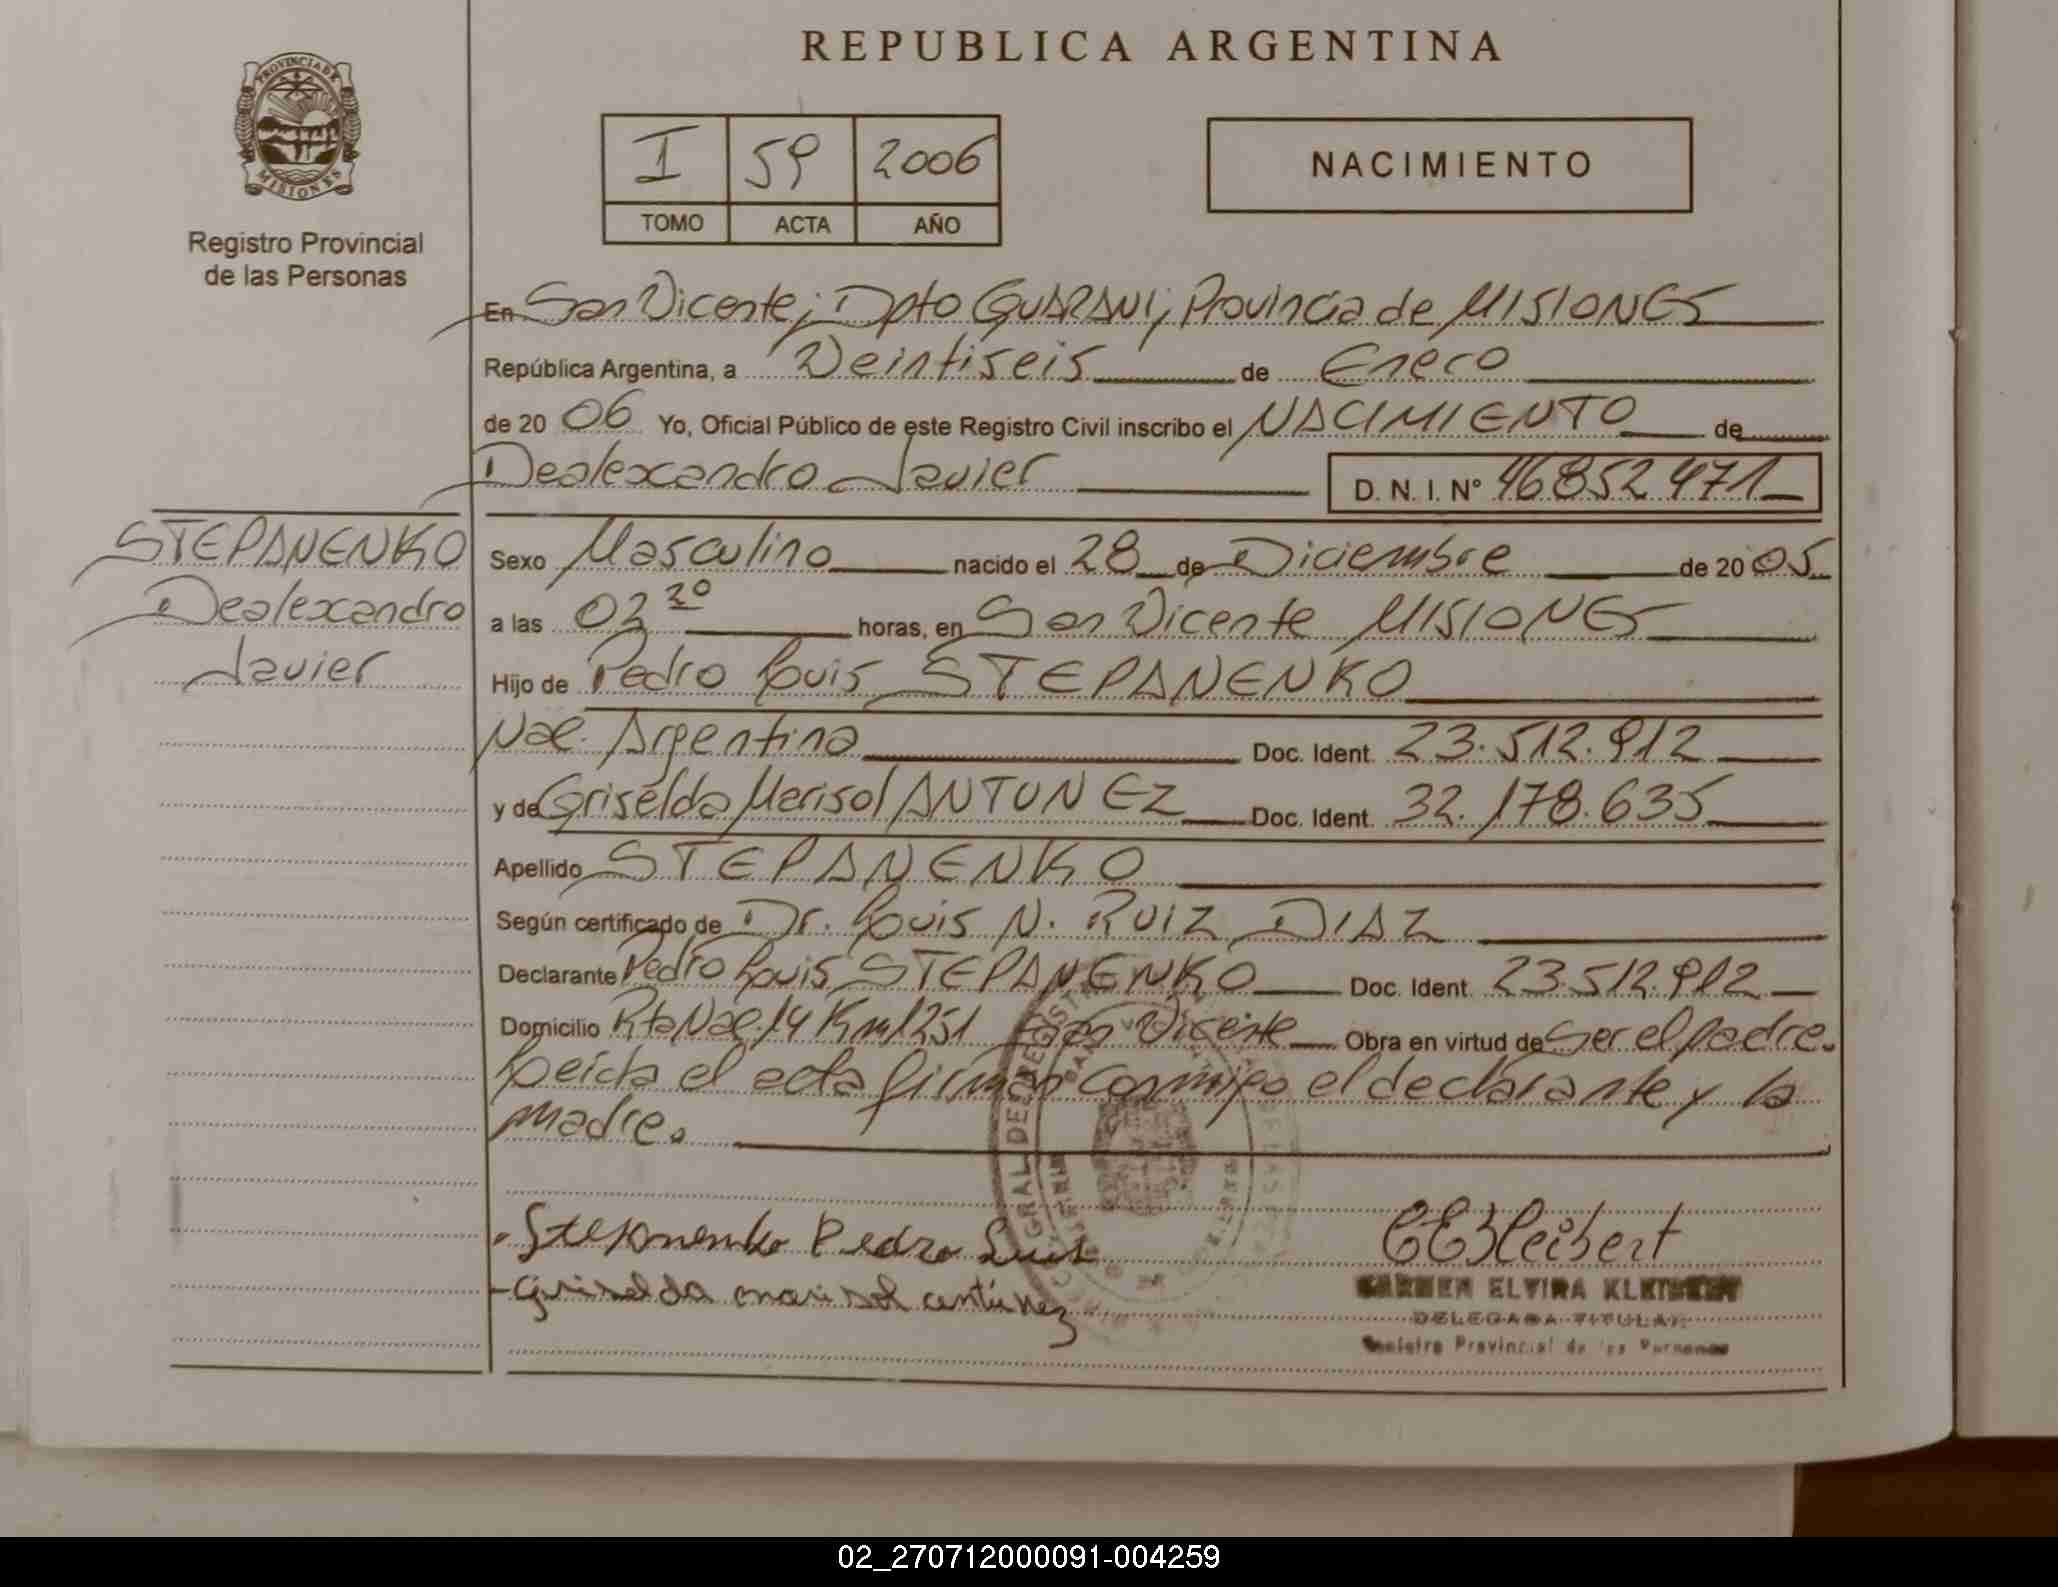 REPUBLICA ARGENTINA
PROVINCIA DE
MISIONES
Registro Provincial
de las Personas
I 59 2006
TOMO ACTA AÑO
NACIMIENTO
En San Vicente, Dpto GUARANI, Provincia de MISIONES
República Argentina, a Veintiseis de Enero
de 20 06 Yo, Oficial Público de este Registro Civil inscribo el NACIMIENTO de
Dealexandro Javier D. N. I. N° 46852471
STEPANENKO
Dealexandro
Javier
Sexo Masculino nacido el 28 de Diciembre de 20 05
a las 03 horas, en San Vicente MISIONES
Hijo de Pedro Luis STEPANENKO
Nac. Argentina Doc. Ident. 23.512.912
y de Griselda Marisol ANTUNEZ Doc. Ident. 32.178.635
Apellido STEPANENKO
Según certificado de Dr. Luis N. RUIZ DIAZ
Declarante Pedro Luis STEPANENKO Doc. Ident. 23.512.912
Domicilio Rta Nac. 14 Km 1251 San Vicente Obra en virtud de ser el padre.
Leída el acta firman conmigo el declarante y la
madre.
Stepanenko Pedro Luis
Griselda marisol antúnez
CEKleibert
CARMEN ELVIRA
DELEGADA TITULAR
Registro Provincial de las Personas
02_270712000091-004259